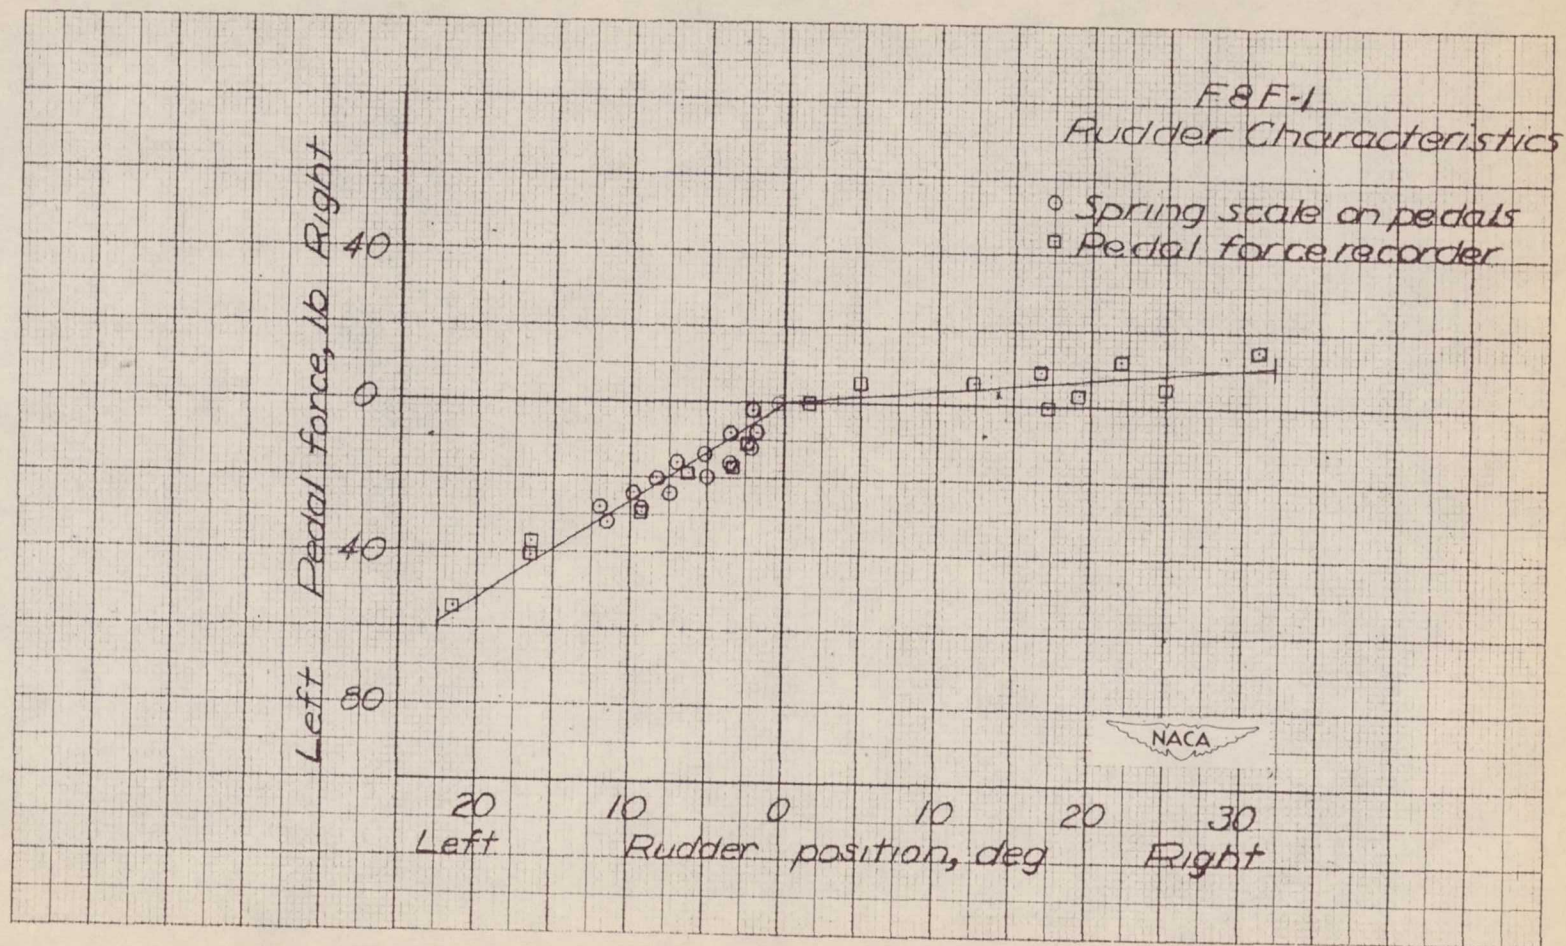 F8F-1
Rudder Characteristics
Spring scale on pedals
Pedal force recorder
Left Pedal force, lb Right
40
0
40
80
20 10 0 10 20 30
Left Rudder position, deg Right
NACA